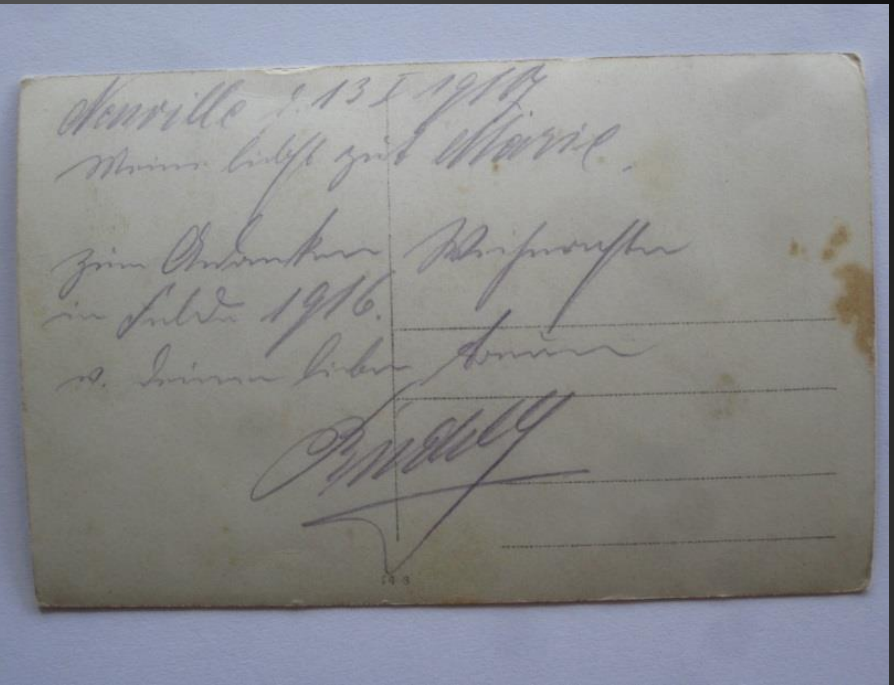 Neuville d. 13 I 1917
Meine liebst gut Marie.
zum Andenken Weihnachten
im Felde 1916.
v. deinem lieben
Rudolf